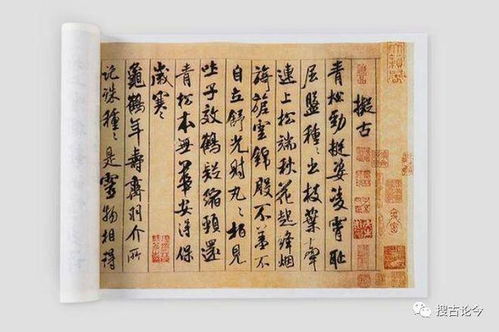 擬古
青松勁挺姿凌霄耻
屈盤種〻出枝葉牽
連上松端秋花起絳烟
旖旎雲錦殷不羞不
自立舒光射丸〻栢見
吐子效鶴疑縮頸還
青松本無華安得保
歲寒
龜鶴年壽齊羽介所
託殊種〻是靈物相得
搜古论今